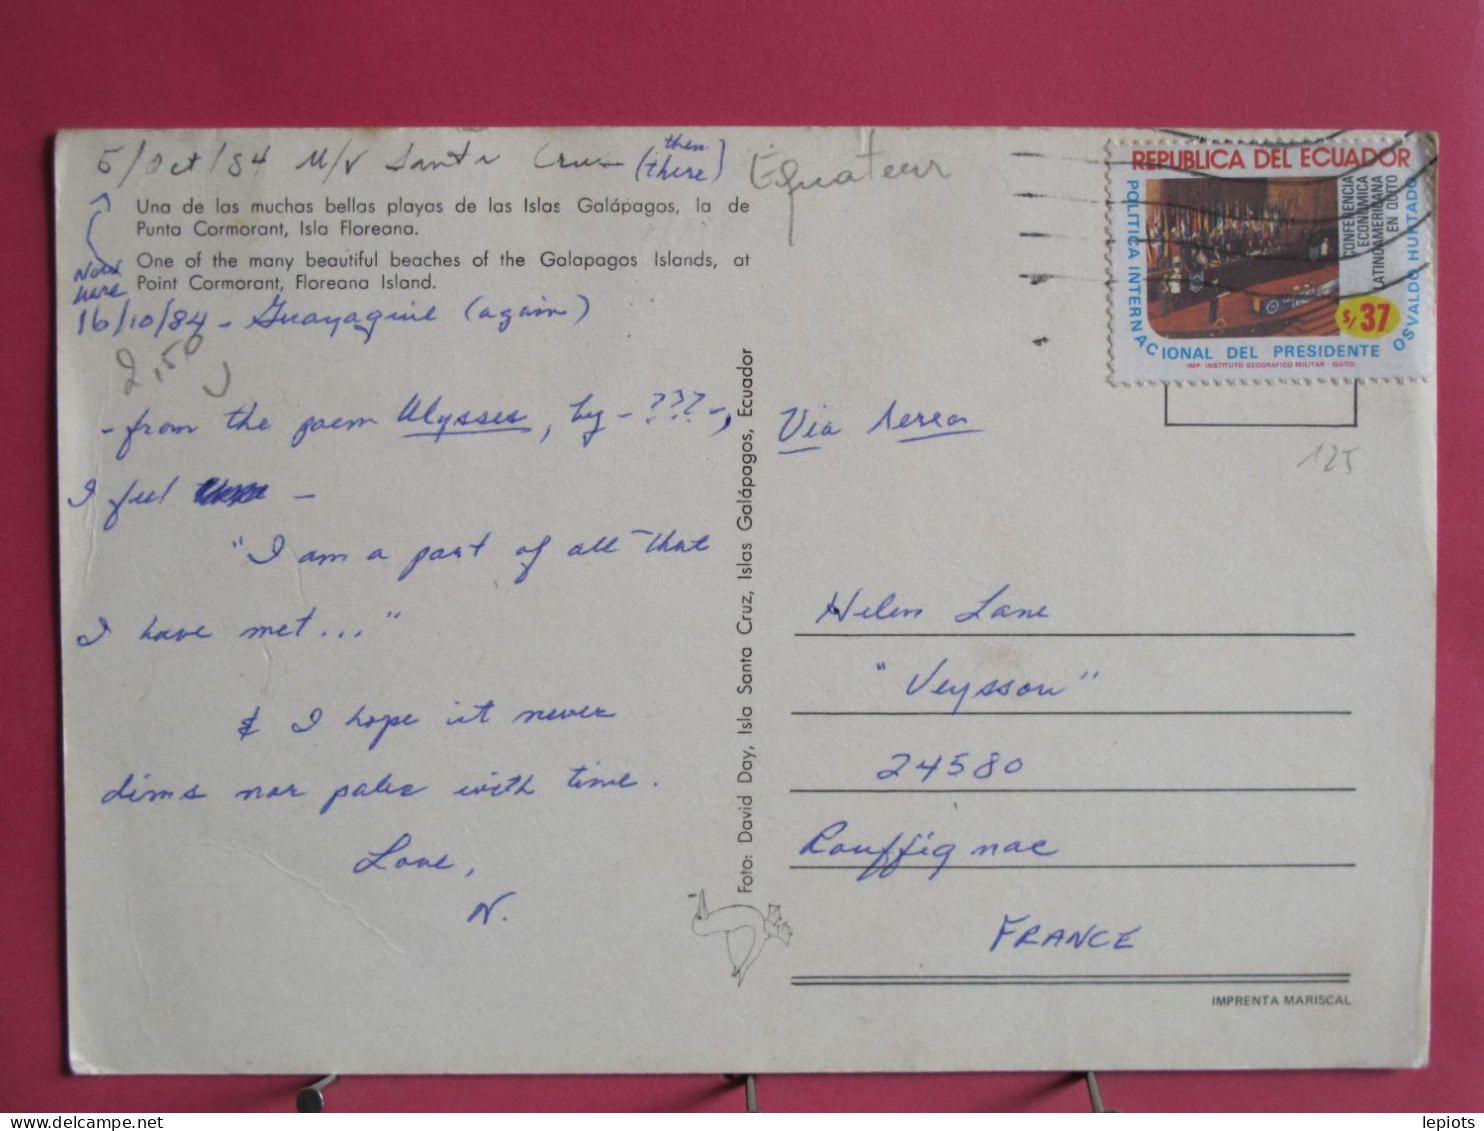 5/Oct/84 M/V Santa Cruz (then there) Equateur
Una de las muchas bellas playas de las Islas Galápagos, la de
Punta Cormorant, Isla Floreana.
One of the many beautiful beaches of the Galapagos Islands, at
Point Cormorant, Floreana Island.
Now
here
16/10/84 - Guayaquil (again)
2,50
- from the poem Ulysses, by - ??? -,
I feel
-
"I am a part of all that
I have met..."
& I hope it never
dims nor pales with time.
Love,
N.
Foto: David Day, Isla Santa Cruz, Islas Galápagos, Ecuador
REPUBLICA DEL ECUADOR
POLITICA INTERNACIONAL DEL PRESIDENTE OSVALDO HURTADO
CONFERENCIA
ECONOMICA
LATINOAMERICANA
EN QUITO
S/. 37
IMP. INSTITUTO GEOGRAFICO MILITAR - QUITO
Via Aerea
125
Helen Lane
"Veysson"
24580
Rouffignac
FRANCE
IMPRENTA MARISCAL
delcampe.net
lepiots